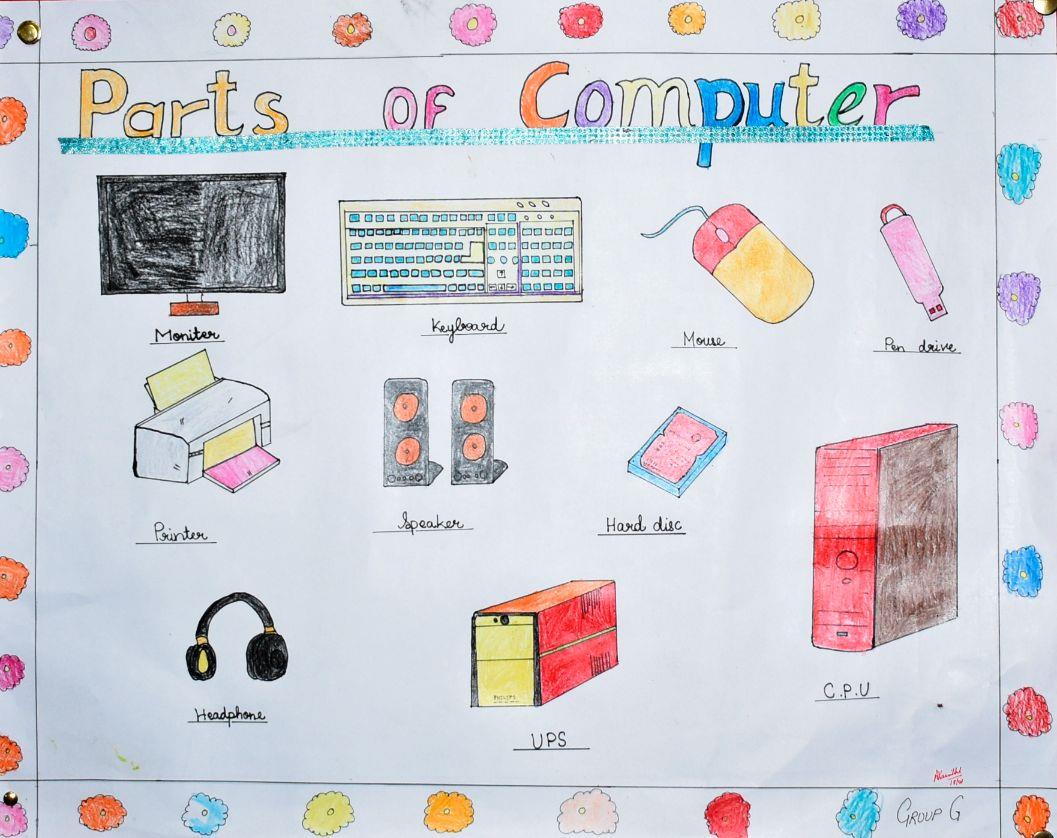 Parts of Computer
Moniter
Keyboard
Mouse
Pen drive
Printer
Speaker
Hard disc
Headphone
PHILIPS
UPS
C.P.U
GROUP G